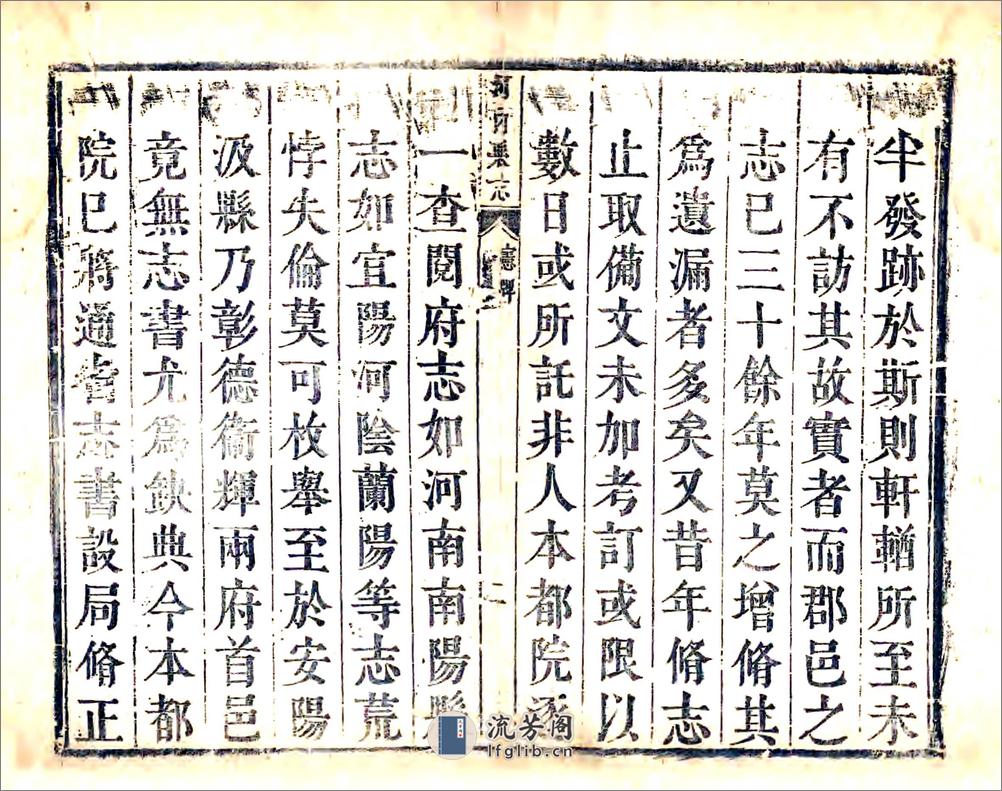 半發跡於斯則軒輶所至未
有不訪其故實者而郡邑之
志已三十餘年莫之增脩其
爲遺漏者多矣又昔年脩志
止取備文未加考訂或限以
數日或所託非人本都院逐
河內縣志
憲牌
二
一查閱府志如河南南陽縣
志如宜陽河陰蘭陽等志荒
悖失倫莫可枚舉至於安陽
汲縣乃彰德衞輝兩府首邑
竟無志書尤爲缺典今本都
院已將通省志書設局脩正
流芳阁
lfglib.cn